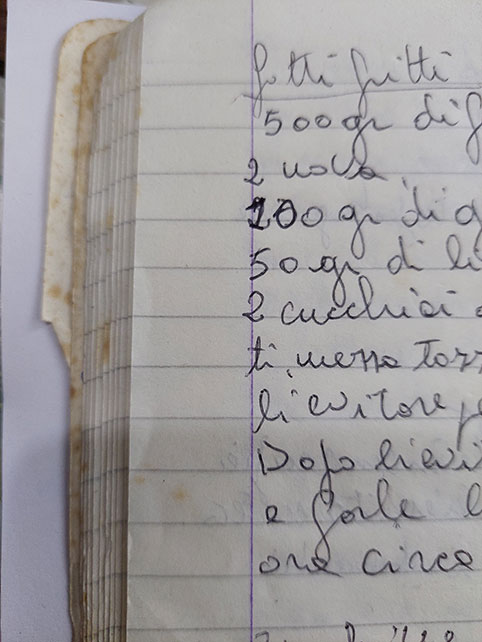 fatti fritti
500 gr di f
2 uova
100 gr di g
50 gr di li
2 cucchiai
ti, mezza Tazz
lievitare pe
Dopo lievi
e farle l
ora circa